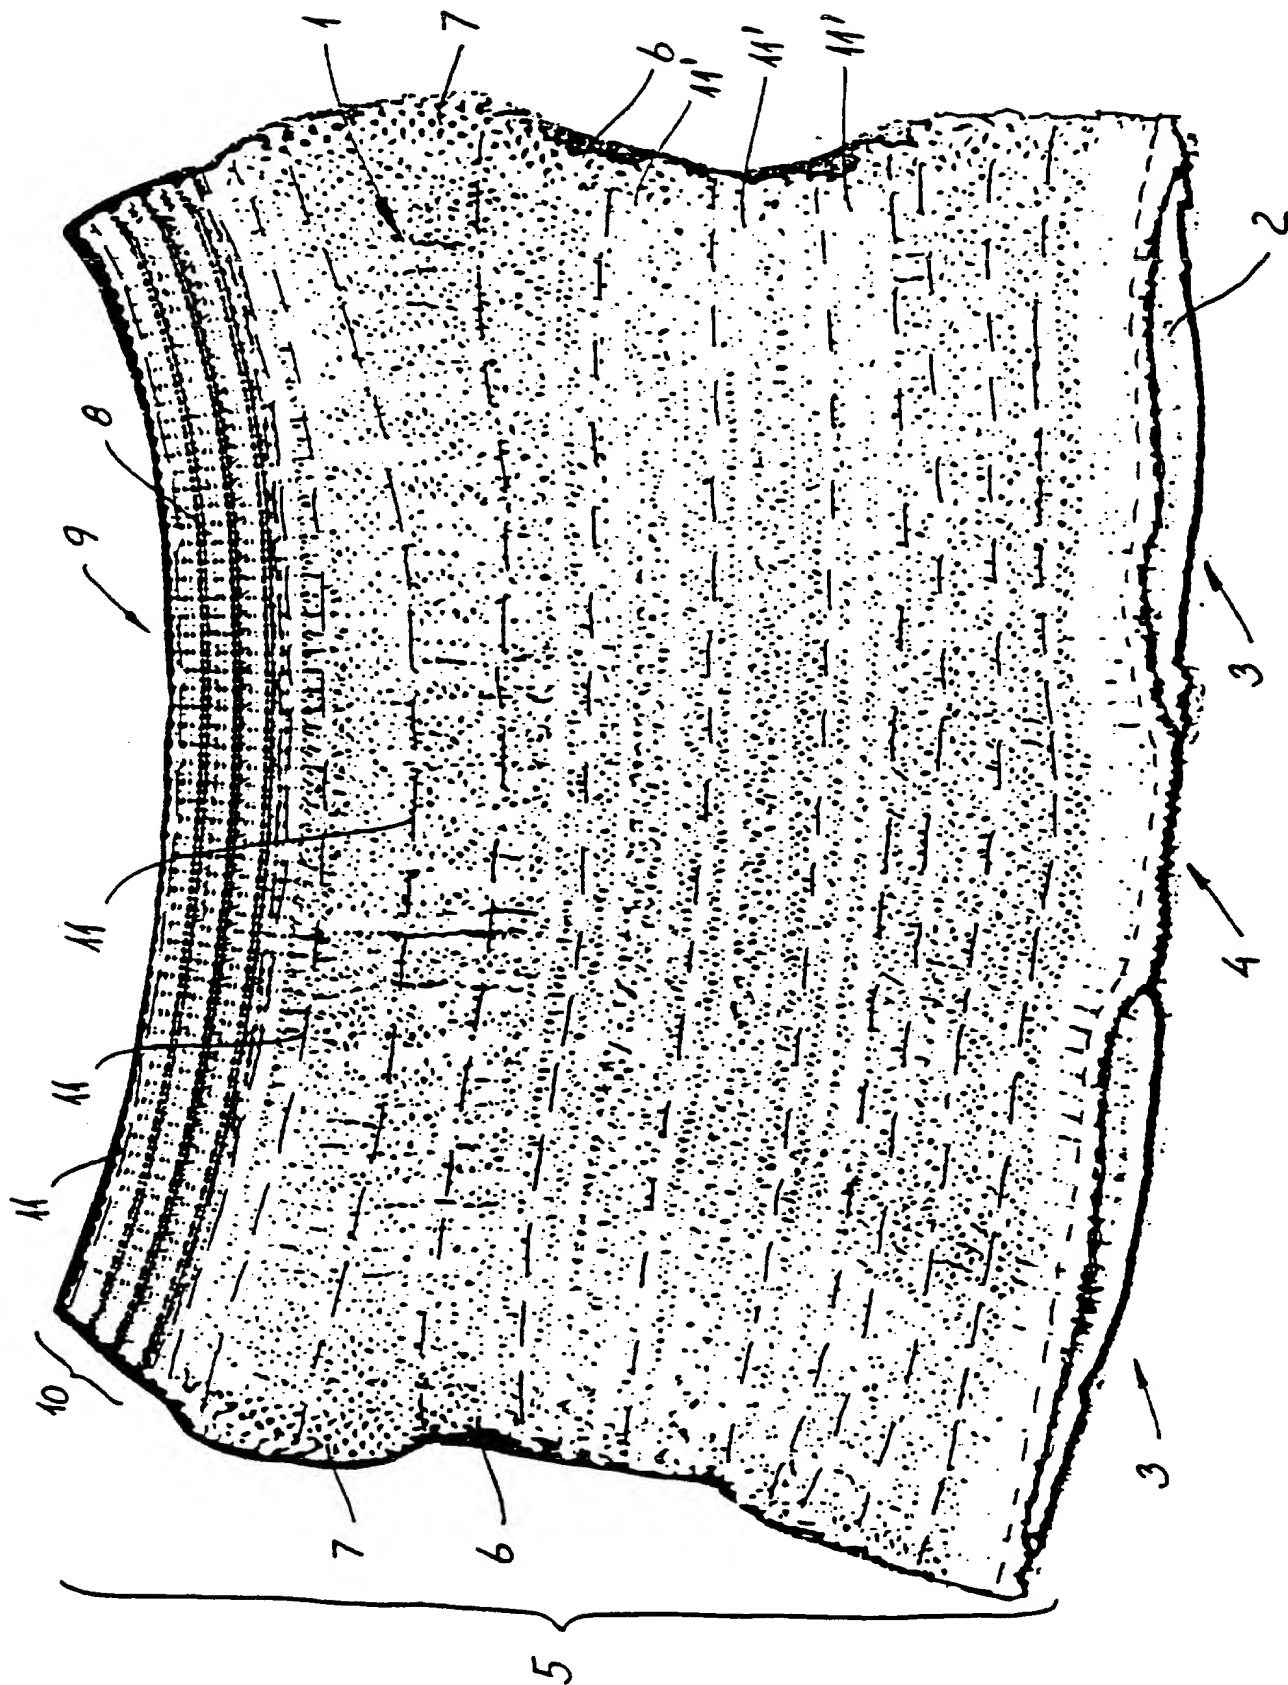 1
7
6
11'
11'
11'
8
9
11
11
11
10
7
6
5
2
3
4
3